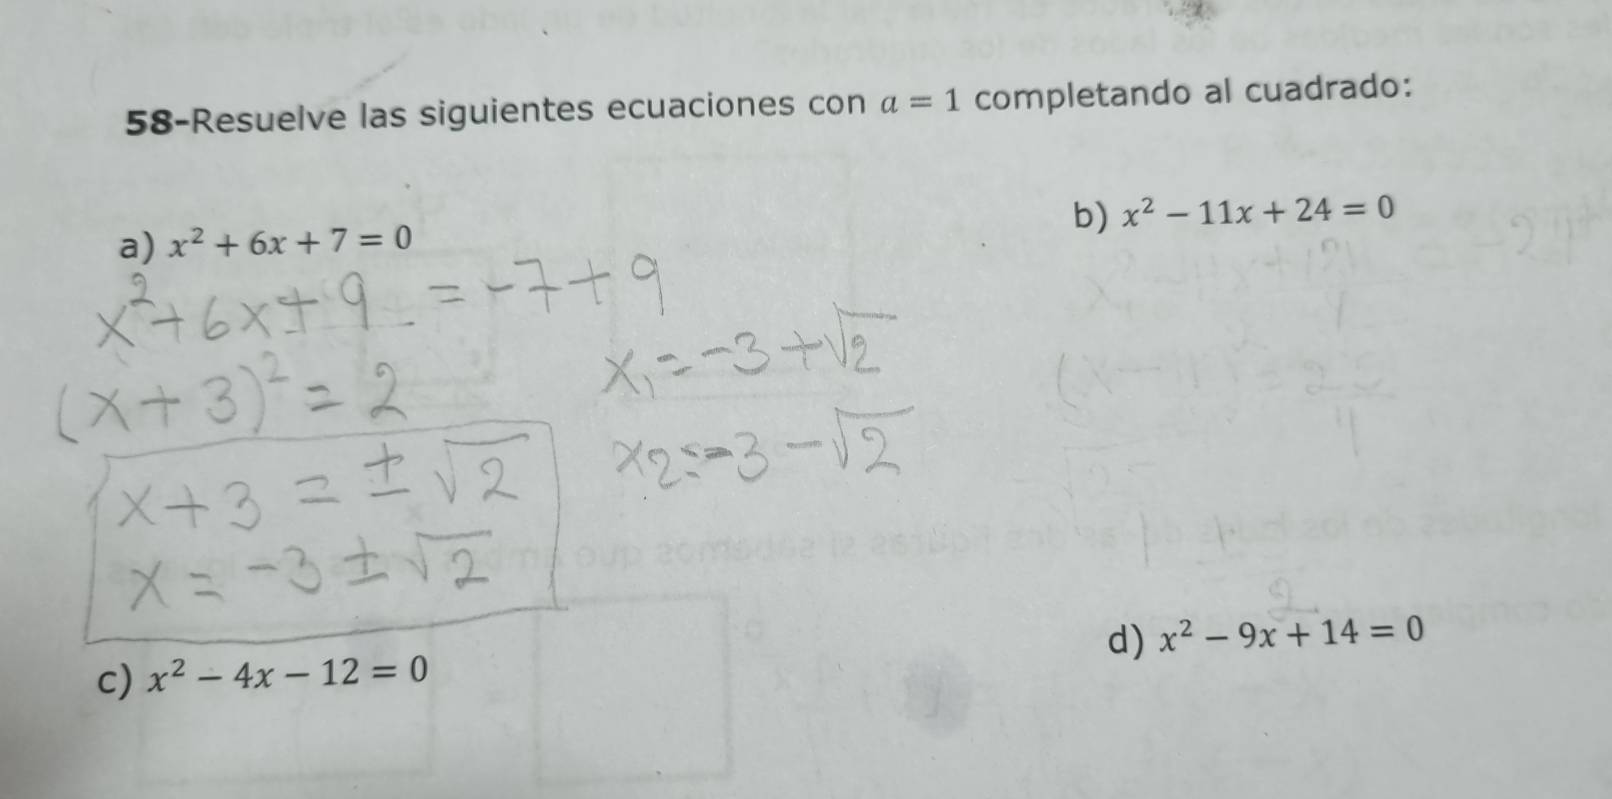 58-Resuelve las siguientes ecuaciones con a = 1 completando al cuadrado:
a) x² + 6x + 7 = 0
x² + 6x + 9 = -7 + 9
(x + 3)² = 2
x + 3 = ± √2
x = -3 ± √2
x₁ = -3 + √2
x₂ = -3 - √2
b) x² − 11x + 24 = 0
c) x² − 4x − 12 = 0
d) x² − 9x + 14 = 0